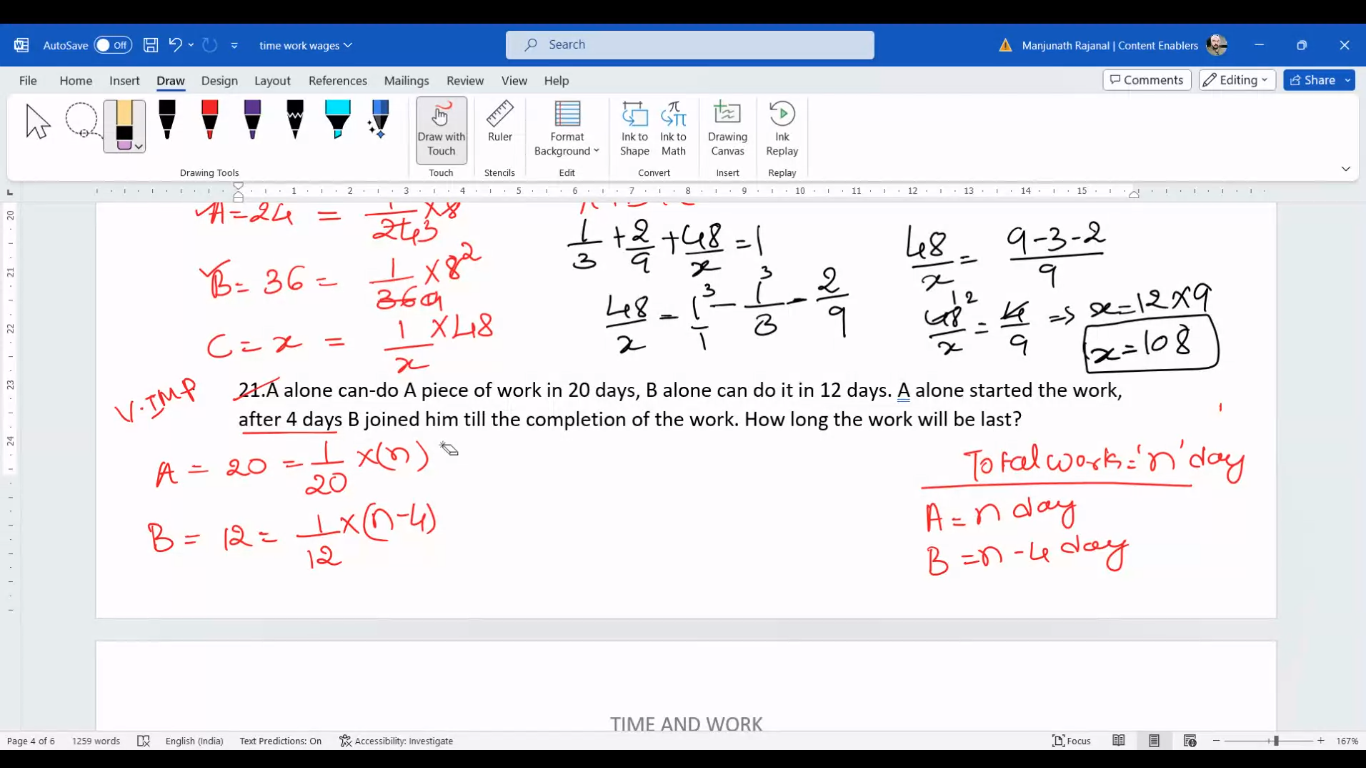 AutoSave Off time work wages Search Manjunath Rajanal | Content Enablers
File Home Insert Draw Design Layout References Mailings Review View Help Comments Editing Share
Draw with Touch Ruler Format Background Ink to Shape Ink to Math Drawing Canvas Ink Replay
Drawing Tools Touch Stencils Edit Convert Insert Replay
1 2 3 4 5 6 7 8 9 10 11 12 13 14 15
20
21
22
23
24
A=24 = 1/243 ×8
B=36 = 1/369 ×8 2
C=x = 1/x ×48
1/3 + 2/9 + 48/x = 1
48/x = 1 3/1 - 1 3/3 - 2/9
48/x = 9-3-2/9
48 12/x = 4/9 => x=12×9
x=108
V.IMP
21.A alone can-do A piece of work in 20 days, B alone can do it in 12 days. A alone started the work,
after 4 days B joined him till the completion of the work. How long the work will be last?
A = 20 = 1/20 ×(n)
B = 12 = 1/12 ×(n-4)
Total work='n' day
A = n day
B = n-4 day
TIME AND WORK
Page 4 of 6 1259 words English (India) Text Predictions: On Accessibility: Investigate Focus 167%